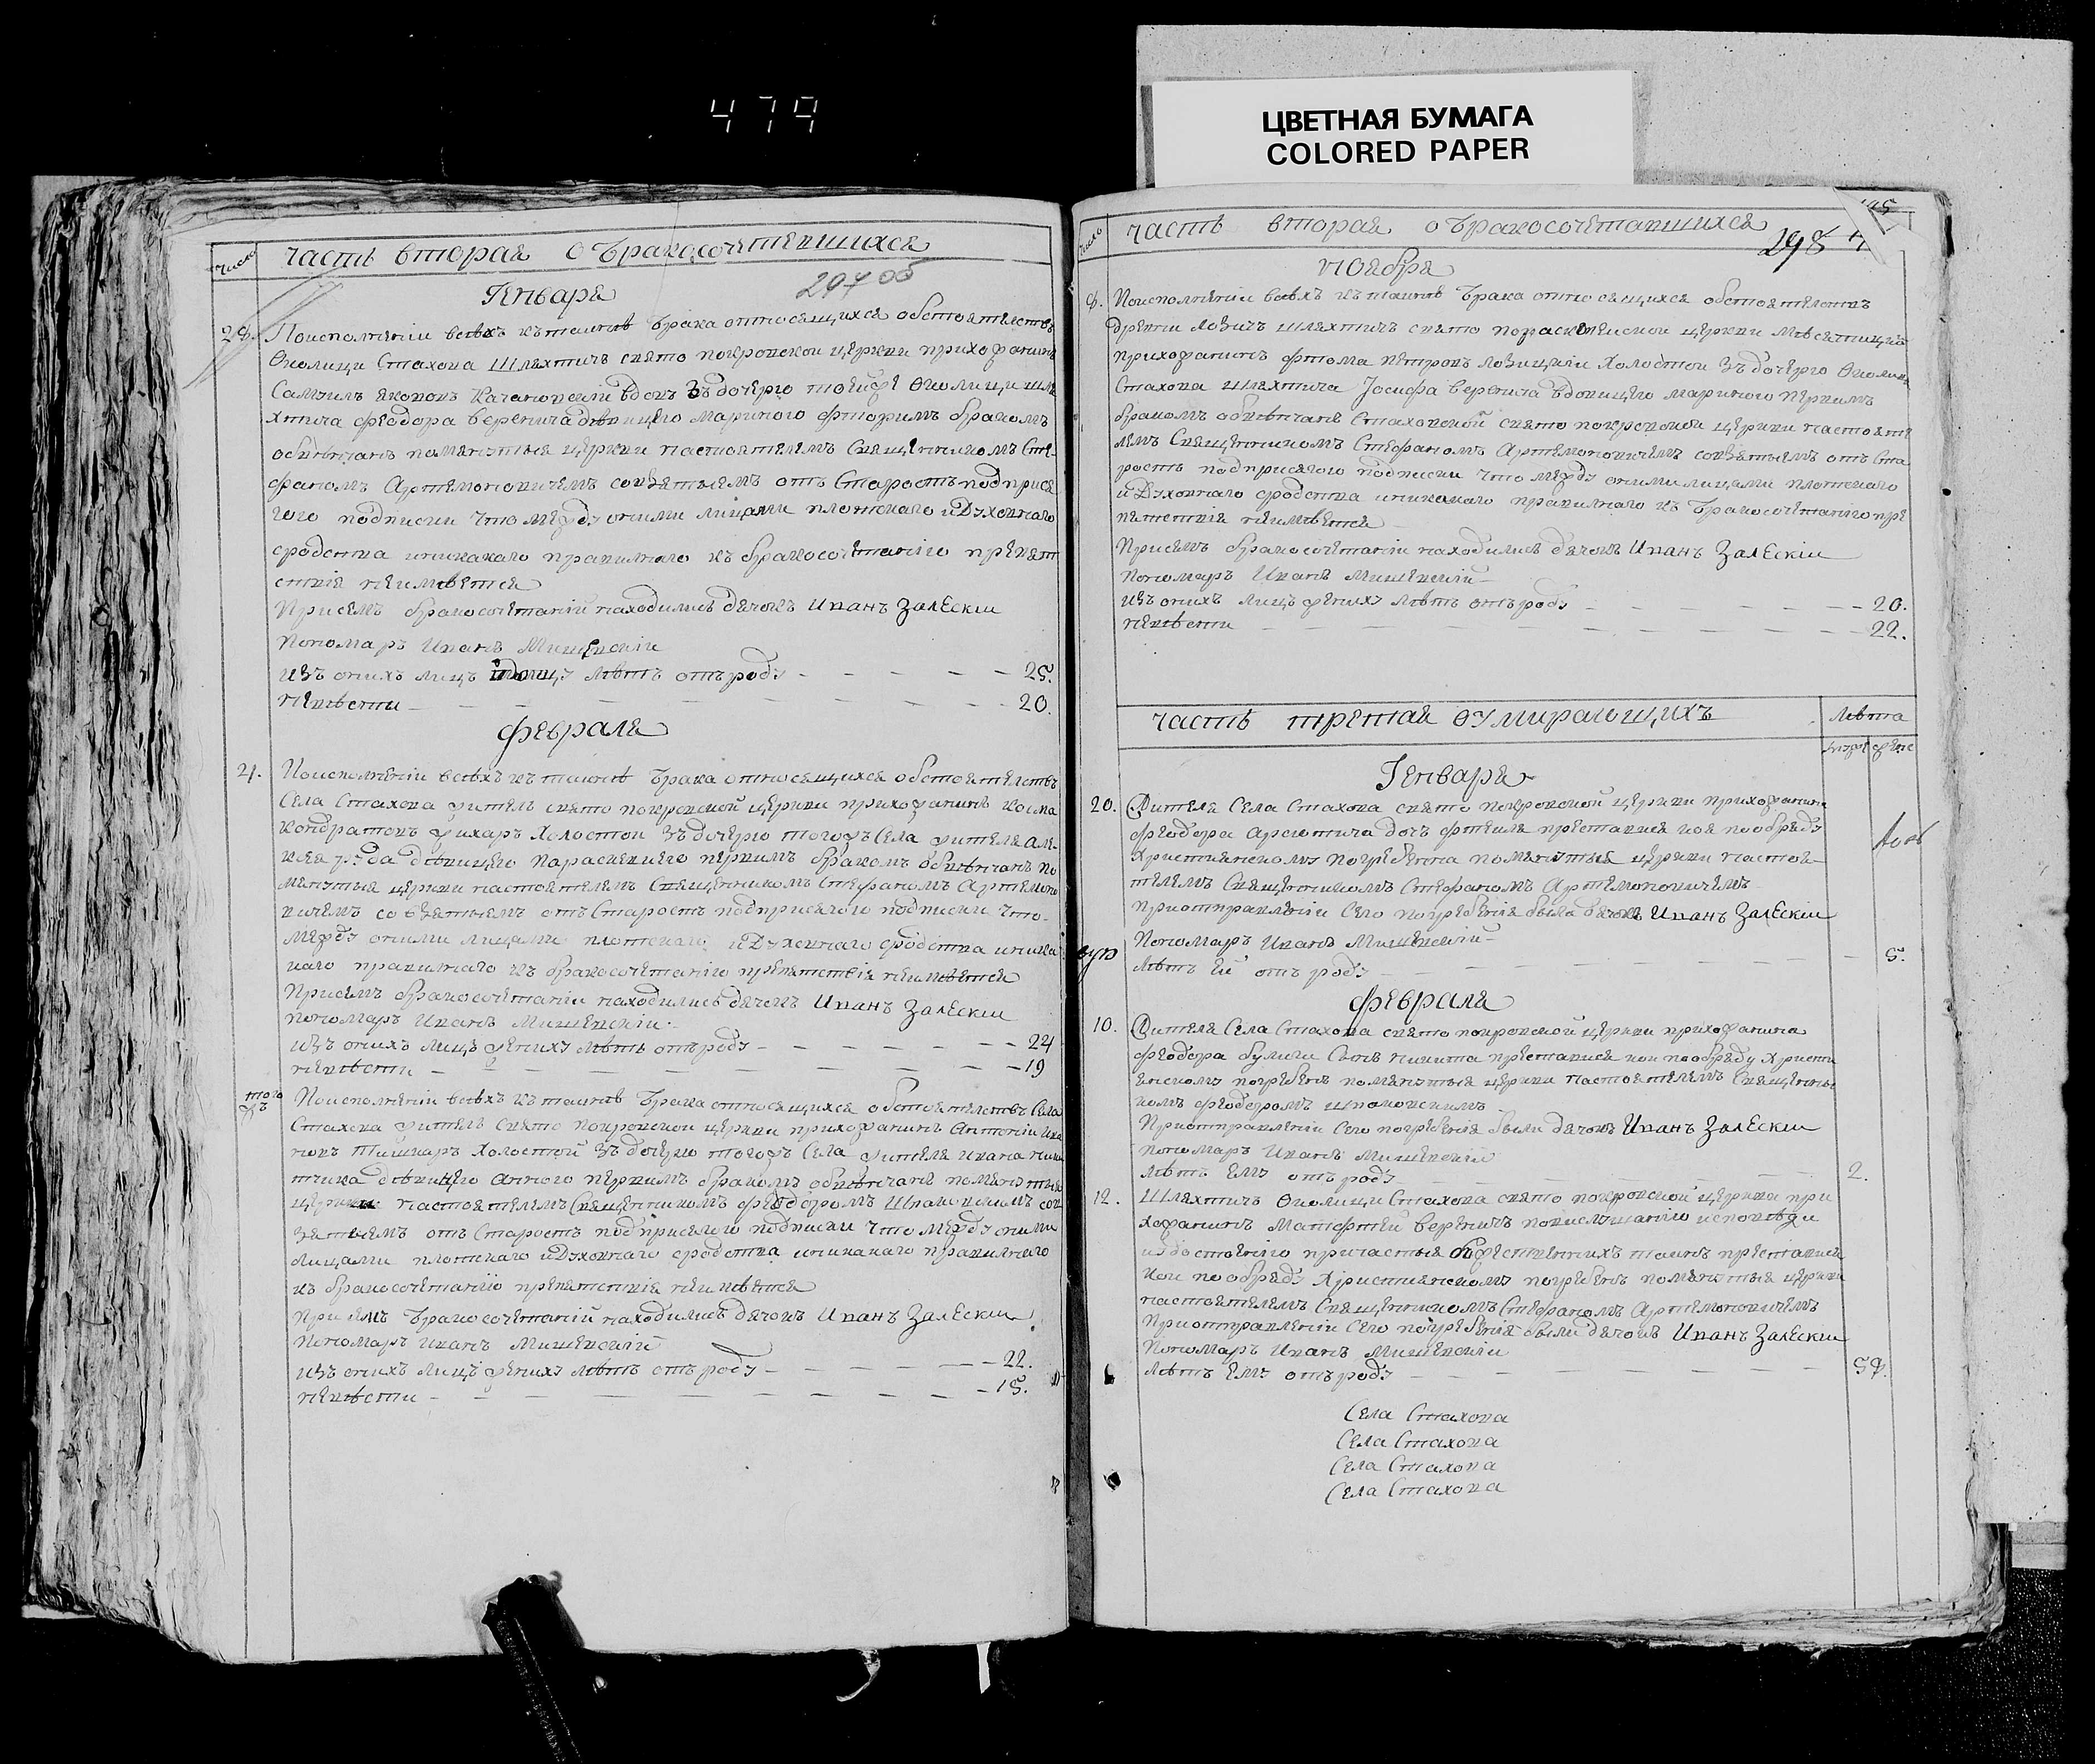 479
ЦВЕТНАЯ БУМАГА
COLORED PAPER
число
часть вторая о бракосочетавшихся
297 об
Генваря
29. По исполнении всѣхъ къ таинѣ брака относящихся обстоятелствъ
Околици Стахова Шляхтичъ свято покровской церкви прихожанинъ
Самуилъ Яковъ Качановскій вдовъ зъ дочерю тоейже Околици шля
хтича Феодора Веренича дѣвицею Мариною фторимъ бракомъ
обвѣнчанъ помянутыя церкви настоятелемъ Священникомъ Сте-
фаномъ Артемоновичемъ совзятыемъ отъ Старостъ подприся
гою подписки что между оними лицами плотскаго и Духовнаго
сродства иникакаго правилнаго къ бракосочетанію препят
ствія неимѣется
Присемъ бракосочетаніи находились дячокъ Иванъ Залескіи
Пономаръ Иванъ Мишевскіи
изъ онихъ лицъ вдовцу лѣтъ отъ роду - - - - - 25.
невѣсти - - - - - 20.
Февраля
21. По исполнении всѣхъ къ таинѣ брака относящихся обстоятелствъ
Села Стахова житель свято покровской церкви прихожанинъ Косма
Кондратовъ Жихаръ Холостои зъ дочерю тогожъ Села жителя Але-
дѣвицею Параскевиею первимъ бракомъ обвѣнчанъ по
мянутыя церкви настоятелемъ Священникомъ Стефаномъ Артемоно
вичемъ совзятыемъ отъ Старостъ подприсягою подписки что-
между оними лицами плотскаго и Духовнаго сродства иника
каго правилнаго къ бракосочетанію препятствія неимѣется
Присемъ бракосочетаніи находились дячокъ Иванъ Залескіи
Пономаръ Иванъ Мишевскіи
изъ онихъ лицъ жениху лѣтъ отъ роду - - - - - 24
невѣсти - - - - - 19
того жъ По исполнении всѣхъ къ таинѣ брака относящихся обстоятелствъ Села
Стахова житель свято покровской церкви прихожанинъ Антоніи Ива
новъ Холостой зъ дочерю тогожъ Села жителя Ивана
дѣвицею Анною первимъ бракомъ обвѣнчанъ помянутыя
церкви настоятелемъ Священникомъ Феодоромъ Шпаковскимъ сов
зятыемъ отъ Старостъ подприсягою подписки что между оними
лицами плотскаго и Духовнаго сродства иникакаго правилнаго
къ бракосочетанію препятствія неимѣется
Присемъ бракосочетаній находились дячокъ Иванъ Залескіи
Пономаръ Иванъ Мишевскій
изъ онихъ лицъ жениху лѣтъ отъ роду - - - - - 22.
невѣсти - - - - - 15.
число
часть вторая о бракосочетавшихся
298
Ноября
8. По исполнении всѣхъ къ таинѣ брака относящихся обстоятелствъ
шляхтичъ свято параскевиской церкви
прихожанинъ Фтома Петровъ Лозицкіи Холостои зъ дочерю Околици
Стахова шляхтича Іосифа Веренича вдовицею Мариною первимъ
бракомъ обвѣнчанъ Стаховской свято покровской церкви настояте
лемъ Священникомъ Стефаномъ Артемоновичемъ совзятыемъ отъ Ста
ростъ подприсягою подписки что между оними лицами плотскаго
и Духовнаго сродства иникакаго правилнаго къ бракосочетанію пре
пятствія неимѣется
Присемъ бракосочетаніи находились дячокъ Иванъ Залескіи
Пономаръ Иванъ Мишевскій
изъ онихъ лицъ жениху лѣтъ отъ роду - - - - - 20.
невѣсти - - - - - 22.
часть третая о умирающихъ
Лѣта
Генваря
20. Жителя Села Стахова свято покровской церкви прихожанина
Феодора дочъ преставися коя пообряду
Християнскому погребенна помянутыя церкви настоя-
телемъ Священникомъ Стефаномъ Артемоновичемъ
Приотправленіи Сего погребенія были дячокъ Иванъ Залескіи
Пономаръ Иванъ Мишевскій
Лѣтъ Ей отъ роду - - - - - 5.
Февраля
10. Жителя Села Стахова свято покровской церкви прихожанина
Феодора Булиги Синъ Никита преставися кои пообряду Христи
янскому погребенъ помянутыя церкви настоятелемъ Священни
комъ Феодоромъ Шпаковскимъ
Приотправленіи Сего погребенія были дячокъ Иванъ Залескіи
Пономаръ Иванъ Мишевскіи
Лѣтъ Ему отъ роду - - 2.
12. Шляхтичъ Околици Стахова свято покровской церкви при
хожанинъ Матфтей Вереничъ повислушанію исповѣди
иудостоенію причастыя Божественнихъ таинъ преставися
кои пообряду Християнскому погребенъ помянутыя церкви
настоятелемъ Священникомъ Стефаномъ Артемоновичемъ
Приотправленіи Сего погребенія были дячокъ Иванъ Залескіи
Пономаръ Иванъ Мишевскіи
Лѣтъ Ему отъ роду - - - - - 59.
Села Стахова
Села Стахова
Села Стахова
Села Стахова